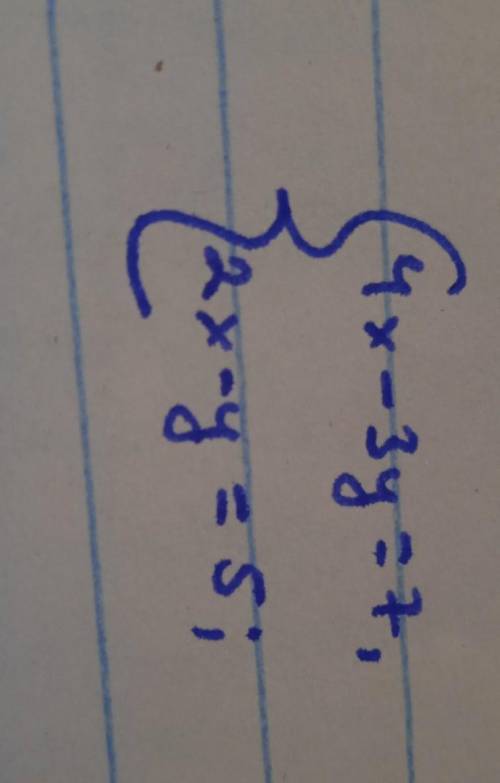 { 4x - 3y = 7,
2x - y = 5;